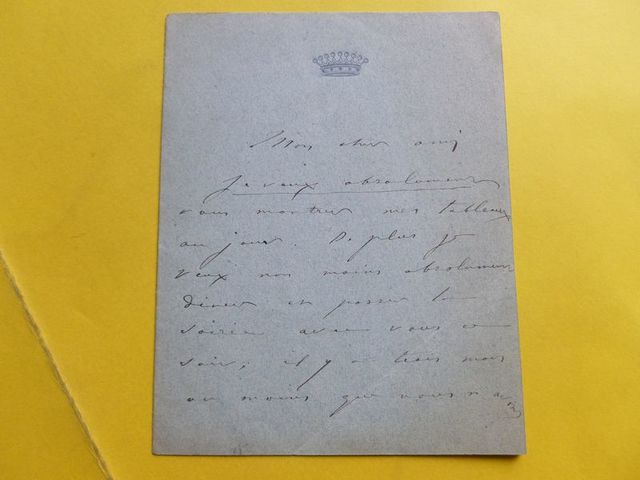 Mon cher ami
Je veux absolument
vous montrer mes tableaux
au jour. De plus je
veux non moins absolument
diner et passer la
soirée avec vous ce
soir; il y a trois mois
au moins que nous n'avons